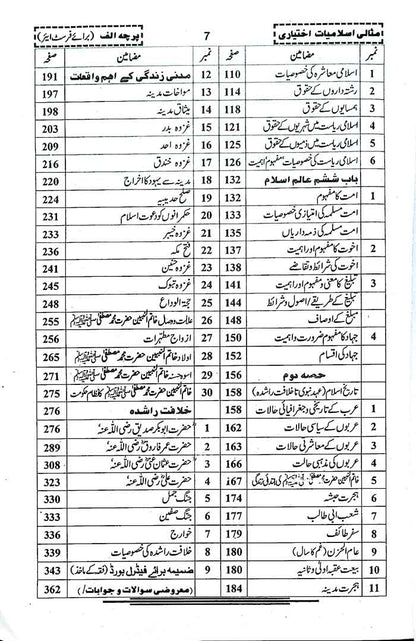 مثالی اسلامیات اختیاری 7 پرچہ الف (برائے فرسٹ ایئر)
نمبر مضامین صفحہ
1 اسلامی معاشرہ کی خصوصیات 110
2 رشتہ داروں کے حقوق 114
3 ہمسایوں کے حقوق 118
4 اسلامی ریاست میں شہریوں کے حقوق 121
5 اسلامی ریاست میں ذمیوں کے حقوق 125
6 اسلامی ریاست کی خصوصیات مفہوم اہمیت 126
باب ششم عالم اسلام 132
1 امت کا مفہوم 132
امت مسلمہ کی امتیازی خصوصیات 133
امت مسلمہ کی ذمہ داریاں 135
2 اخوت کا مفہوم اور اہمیت 137
اخوت کی شرائط و تقاضے 138
3 تبلیغ کا معنی و مفہوم اور اہمیت 141
تبلیغ کے طریقے/اصول و شرائط 144
مبلغ کے اوصاف 148
4 جہاد کا مفہوم ضرورت و اہمیت 150
جہاد کی اقسام 152
حصہ دوم 156
تاریخ اسلام (عہد نبوی تا خلافت راشدہ) 158
1 عرب کے تاریخی و جغرافیائی حالات 158
2 عربوں کے سیاسی حالات 160
3 عربوں کے معاشرتی حالات 163
4 عربوں کی مذہبی حالت 166
5 خاتم النبیین حضرت محمد مصطفیٰ ﷺ کی ابتدائی زندگی 167
6 ہجرت حبشہ 174
7 شعب ابی طالب 177
8 سفر طائف 180
9 عام الحزن (غم کا سال) 180
10 بیعت عقبہ اولیٰ و ثانیہ 180
11 ہجرت مدینہ 184
نمبر مضامین صفحہ
12 مدنی زندگی کے اہم واقعات 191
13 مواخات مدینہ 197
14 میثاق مدینہ 198
15 غزوہ بدر 203
16 غزوہ احد 209
17 غزوہ خندق 216
18 مدینہ سے یہود کا اخراج 220
19 صلح حدیبیہ 224
20 حکمرانوں کو دعوت اسلام 231
21 غزوہ خیبر 233
22 فتح مکہ 236
23 غزوہ حنین 241
24 غزوہ تبوک 245
25 حجۃ الوداع 248
26 علالت و وصال خاتم النبیین حضرت محمد مصطفیٰ ﷺ 255
27 ازواج مطہرات 256
28 اولاد خاتم النبیین حضرت محمد مصطفیٰ ﷺ 265
29 اسوہ حسنہ خاتم النبیین حضرت محمد مصطفیٰ ﷺ 271
30 خاتم النبیین حضرت محمد مصطفیٰ ﷺ کا نظام حکومت 275
خلافت راشدہ 276
1 حضرت ابوبکر صدیق رضی اللہ عنہ 276
2 حضرت عمر فاروق رضی اللہ عنہ 289
3 حضرت عثمان غنی رضی اللہ عنہ 308
4 حضرت علی رضی اللہ عنہ 323
5 جنگ جمل 330
6 جنگ صفین 333
7 خوارج 336
8 خلافت راشدہ کی خصوصیات 339
9 ضمیمہ برائے فیڈرل بورڈ (فقہ کے ماخذ) 343
(معروضی سوالات و جوابات/) 362